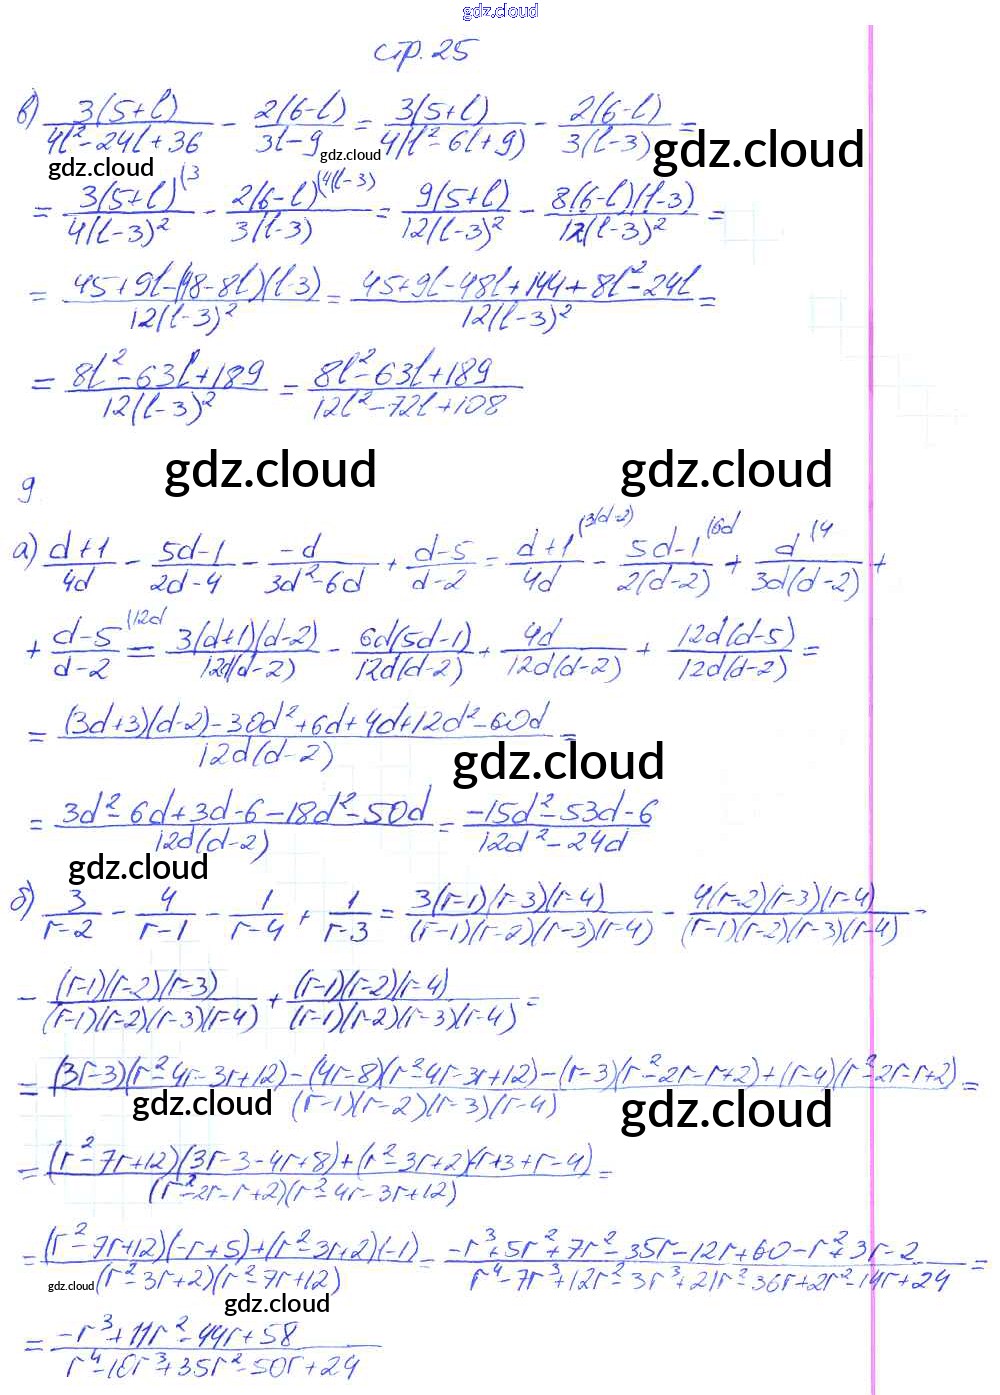 gdz.cloud
стр. 25
в) 3(5+l)/(4l²-24l+36) - 2(6-l)/(3l-9) = 3(5+l)/(4(l²-6l+9)) - 2(6-l)/(3(l-3)) =
gdz.cloud gdz.cloud gdz.cloud
= 3(5+l)⁽³/(4(l-3)²) - 2(6-l)⁽⁴⁽ˡ⁻³⁾/(3(l-3)) = 9(5+l)/(12(l-3)²) - 8(6-l)(l-3)/(12(l-3)²) =
= (45+9l-(48-8l)(l-3))/(12(l-3)²) = (45+9l-48l+144+8l²-24l)/(12(l-3)²) =
= (8l²-63l+189)/(12(l-3)²) = (8l²-63l+189)/(12l²-72l+108)
gdz.cloud gdz.cloud
9
а) (d+1)/(4d) - (5d-1)/(2d-4) - (-d)/(3d²-6d) + (d-5)/(d-2) = (d+1)/(4d) (3(d-2) - (5d-1)/(2(d-2)) (6d + d/(3d(d-2)) (4 +
+ (d-5)/(d-2) (12d = 3(d+1)(d-2)/(12d(d-2)) - 6d(5d-1)/(12d(d-2)) + 4d/(12d(d-2)) + 12d(d-5)/(12d(d-2)) =
= ((3d+3)(d-2)-30d²+6d+4d+12d²-60d)/(12d(d-2)) =
gdz.cloud
= (3d²-6d+3d-6-18d²-50d)/(12d(d-2)) = (-15d²-53d-6)/(12d²-24d)
gdz.cloud
б) 3/(r-2) - 4/(r-1) - 1/(r-4) + 1/(r-3) = 3(r-1)(r-3)(r-4)/((r-1)(r-2)(r-3)(r-4)) - 4(r-2)(r-3)(r-4)/((r-1)(r-2)(r-3)(r-4)) -
- (r-1)(r-2)(r-3)/((r-1)(r-2)(r-3)(r-4)) + (r-1)(r-2)(r-4)/((r-1)(r-2)(r-3)(r-4)) =
= ((3r-3)(r²-4r-3r+12)-(4r-8)(r²-4r-3r+12)-(r-3)(r²-2r-r+2)+(r-4)(r²-2r-r+2))/((r-1)(r-2)(r-3)(r-4)) =
gdz.cloud gdz.cloud
= ((r²-7r+12)(3r-3-4r+8)+(r²-3r+2)(-r+3+r-4))/((r²-2r-r+2)(r²-4r-3r+12)) =
= ((r²-7r+12)(-r+5)+(r²-3r+2)(-1))/((r²-3r+2)(r²-7r+12)) = (-r³+5r²+7r²-35r-12r+60-r²+3r-2)/(r⁴-7r³+12r²-3r³+21r²-36r+2r²-14r+24) =
gdz.cloud gdz.cloud
= (-r³+11r²-44r+58)/(r⁴-10r³+35r²-50r+24)